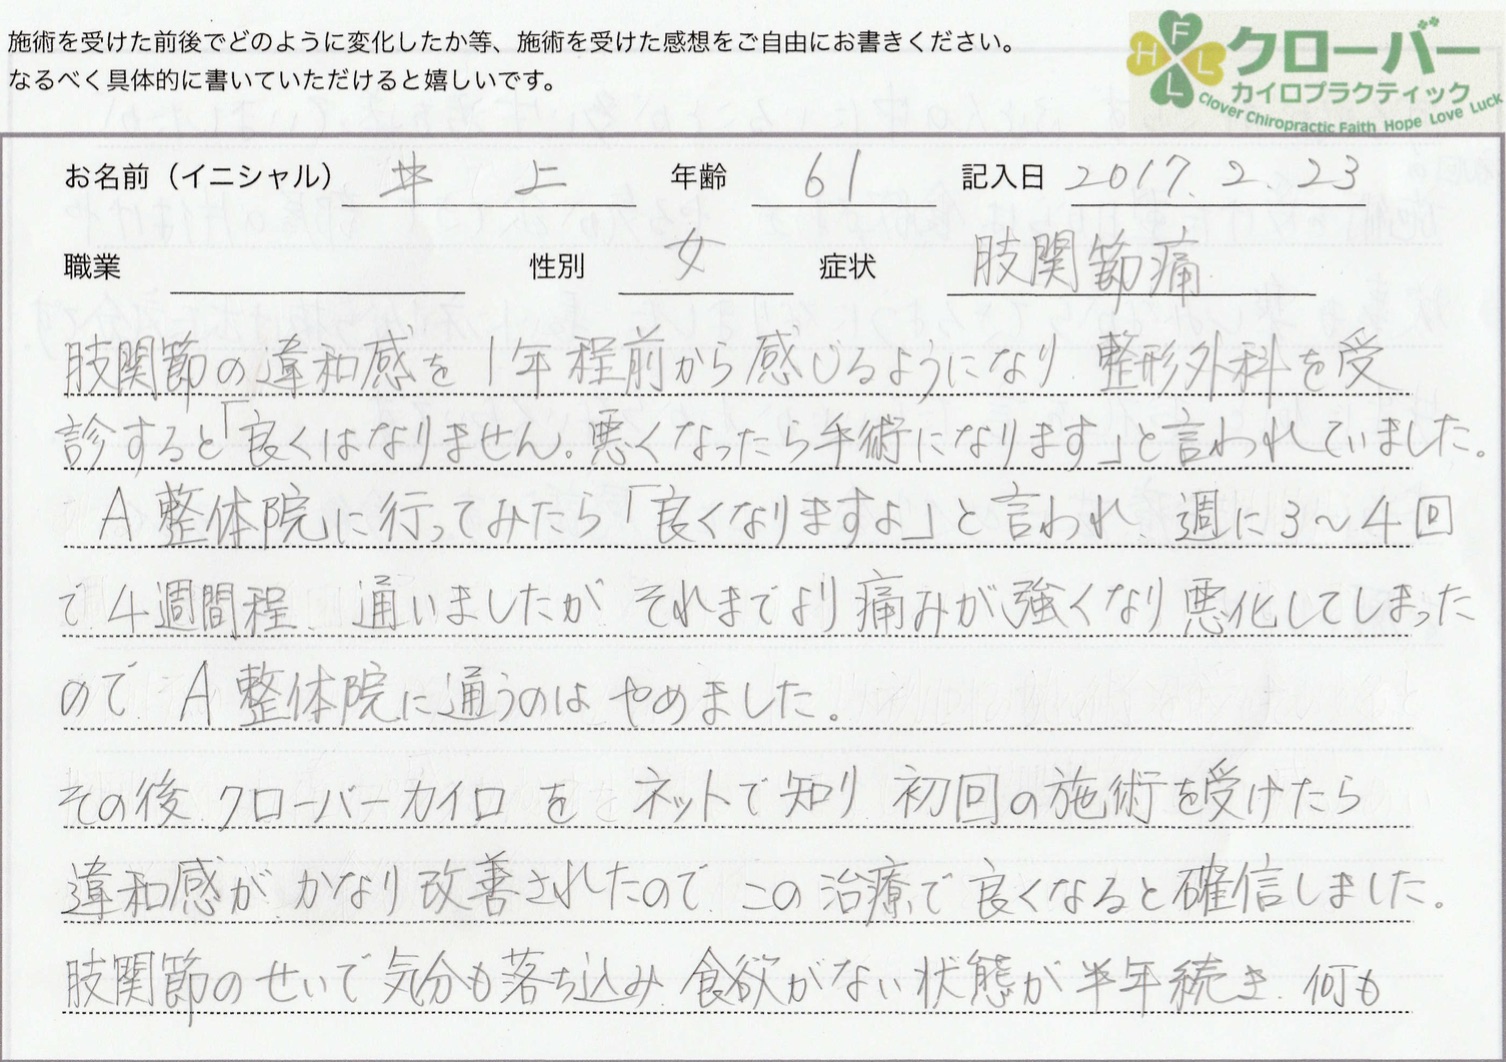 施術を受けた前後でどのように変化したか等、施術を受けた感想をご自由にお書きください。
なるべく具体的に書いていただけると嬉しいです。
F
H L
L
クローバー
カイロプラクティック
Clover Chiropractic Faith Hope Love Luck
お名前（イニシャル） 井 上 年齢 61 記入日 2017.2.23
職業 性別 女 症状 肢関節痛
肢関節の違和感を1年程前から感じるようになり、整形外科を受
診すると「良くはなりません。悪くなったら手術になります」と言われていました。
A整体院に行ってみたら「良くなりますよ」と言われ、週に3〜4回
で4週間程、通いましたが それまでより痛みが強くなり悪化してしまった
ので A整体院に通うのは やめました。
その後 クローバーカイロ を ネットで知り 初回の施術を受けたら
違和感が かなり改善されたので、この治療で良くなると確信しました。
肢関節のせいで気分も落ち込み、食欲がない状態が半年続き、何も